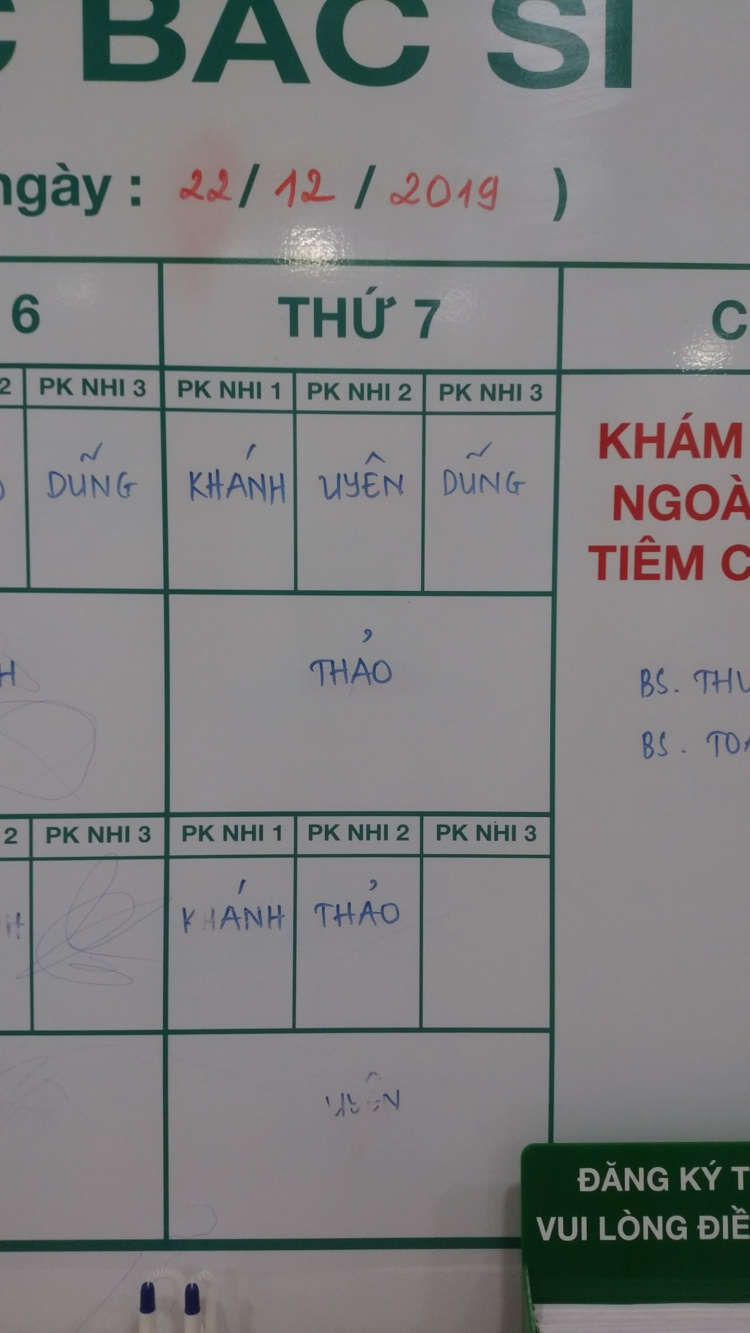 BÁC SĨ
ngày : 22 / 12 / 2019 )
6 THỨ 7
2 PK NHI 3 PK NHI 1 PK NHI 2 PK NHI 3
DŨNG KHÁNH UYÊN DŨNG
KHÁM
NGOÀ
TIÊM C
H THẢO
BS. THU
BS. TOÀ
2 PK NHI 3 PK NHI 1 PK NHI 2 PK NHI 3
H KHÁNH THẢO
UYÊN
ĐĂNG KÝ T
VUI LÒNG ĐIỀ